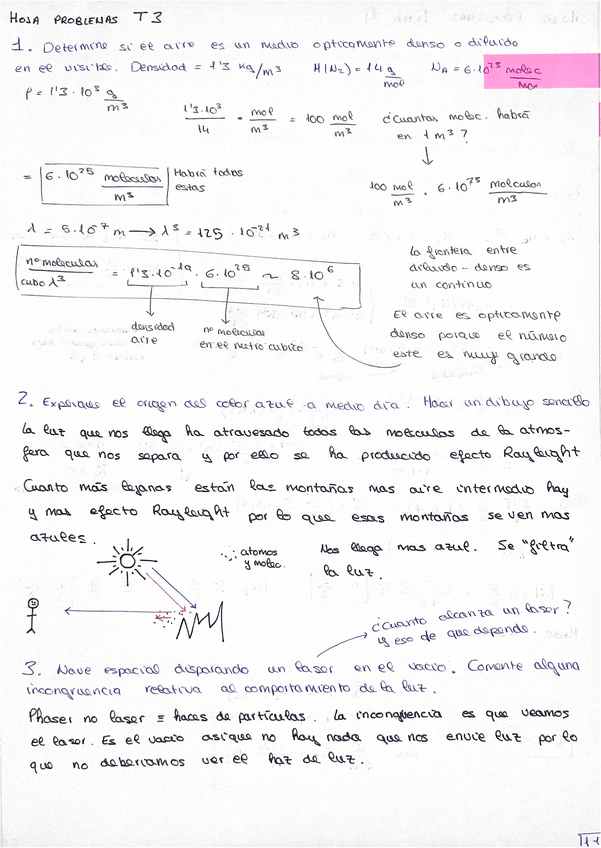 HOJA PROBLEMAS T3
1. Determine si el aire es un medio opticamente denso o diluido
en el visible. Densidad = 1'3 kg/m³ M(N₂) = 14 g/mol NA = 6·10²³ molec/mol
ρ = 1'3·10³ g/m³
1'3·10³/14 · mol/m³ = 100 mol/m³
¿cuantas molec. habrá
en 1 m³?
= 6·10²⁵ moleculas/m³
Habrá todas
estas
100 mol/m³ · 6·10²³ molculas/m³
λ = 5·10⁻⁷ m → λ³ = 125·10⁻²¹ m³
nº moleculas/cubo λ³ = 1'3·10⁻¹⁹ · 6·10²⁵ ~ 8·10⁶
densidad
aire
nº moleculas
en el metro cubico
la frontera entre
diluido - denso es
un continuo
El aire es opticamente
denso porque el número
este es muy grande
2. Explique el origen del color azul a medio día. Hacer un dibujo sencillo
la luz que nos llega ha atravesado todas las moleculas de la atmos-
fera que nos separa y por ello se ha producido efecto Rayleight
Cuanto más lejanas están las montañas mas aire intermedio hay
y mas efecto Rayleight por lo que esas montañas se ven mas
azules.
atomos
y molec.
Nos llega mas azul. Se "filtra"
la luz.
¿cuanto alcanza un laser?
y eso de que depende.
3. Nave espacial disparando un laser en el vacio. Comente alguna
incongruencia relativa al comportamiento de la luz.
Phaser no laser = haces de partículas. La incongruencia es que veamos
el laser. Es el vacio asi que no hay nada que nos envie luz por lo
que no deberiamos ver el haz de luz.